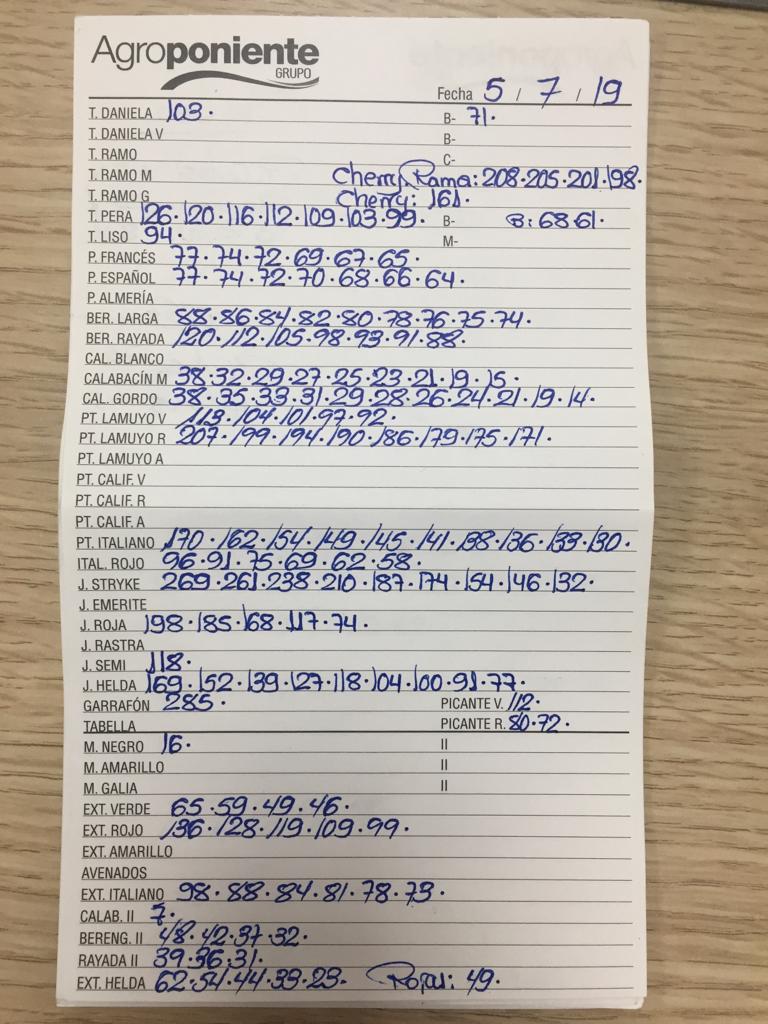 Agroponiente
GRUPO
Fecha 5 / 7 / 19
T. DANIELA 103. B- 71.
T. DANIELA V B-
T. RAMO C-
T. RAMO M Cherry Rama: 208.205.201.198.
T. RAMO G Cherry: 161.
T. PERA 126.120.116.112.109.103.99. B- B: 68 61.
T. LISO 94. M-
P. FRANCÉS 77.74.72.69.67.65.
P. ESPAÑOL 77.74.72.70.68.66.64.
P. ALMERÍA
BER. LARGA 88.86.84.82.80.78.76.75.74.
BER. RAYADA 120.112.105.98.93.91.88.
CAL. BLANCO
CALABACÍN M 38.32.29.27.25.23.21.19.15.
CAL. GORDO 38.35.33.31.29.28.26.24.21.19.14.
PT. LAMUYO V 113.104.101.97.92.
PT. LAMUYO R 207.199.194.190.186.179.175.171.
PT. LAMUYO A
PT. CALIF. V
PT. CALIF. R
PT. CALIF. A
PT. ITALIANO 170.162.154.149.145.141.138.136.133.130.
ITAL. ROJO 96.91.75.69.62.58.
J. STRYKE 269.261.238.210.187.174.154.146.132.
J. EMERITE
J. ROJA 198.185.168.117.74.
J. RASTRA
J. SEMI 118.
J. HELDA 169.152.139.127.118.104.100.91.77.
GARRAFÓN 285. PICANTE V. 112.
TABELLA PICANTE R. 80.72.
M. NEGRO 16. II
M. AMARILLO II
M. GALIA II
EXT. VERDE 65.59.49.46.
EXT. ROJO 136.128.119.109.99.
EXT. AMARILLO
AVENADOS
EXT. ITALIANO 98.88.84.81.78.73.
CALAB. II 7.
BERENG. II 48.42.37.32.
RAYADA II 39.36.31.
EXT. HELDA 62.54.44.33.23. Rojas: 49.